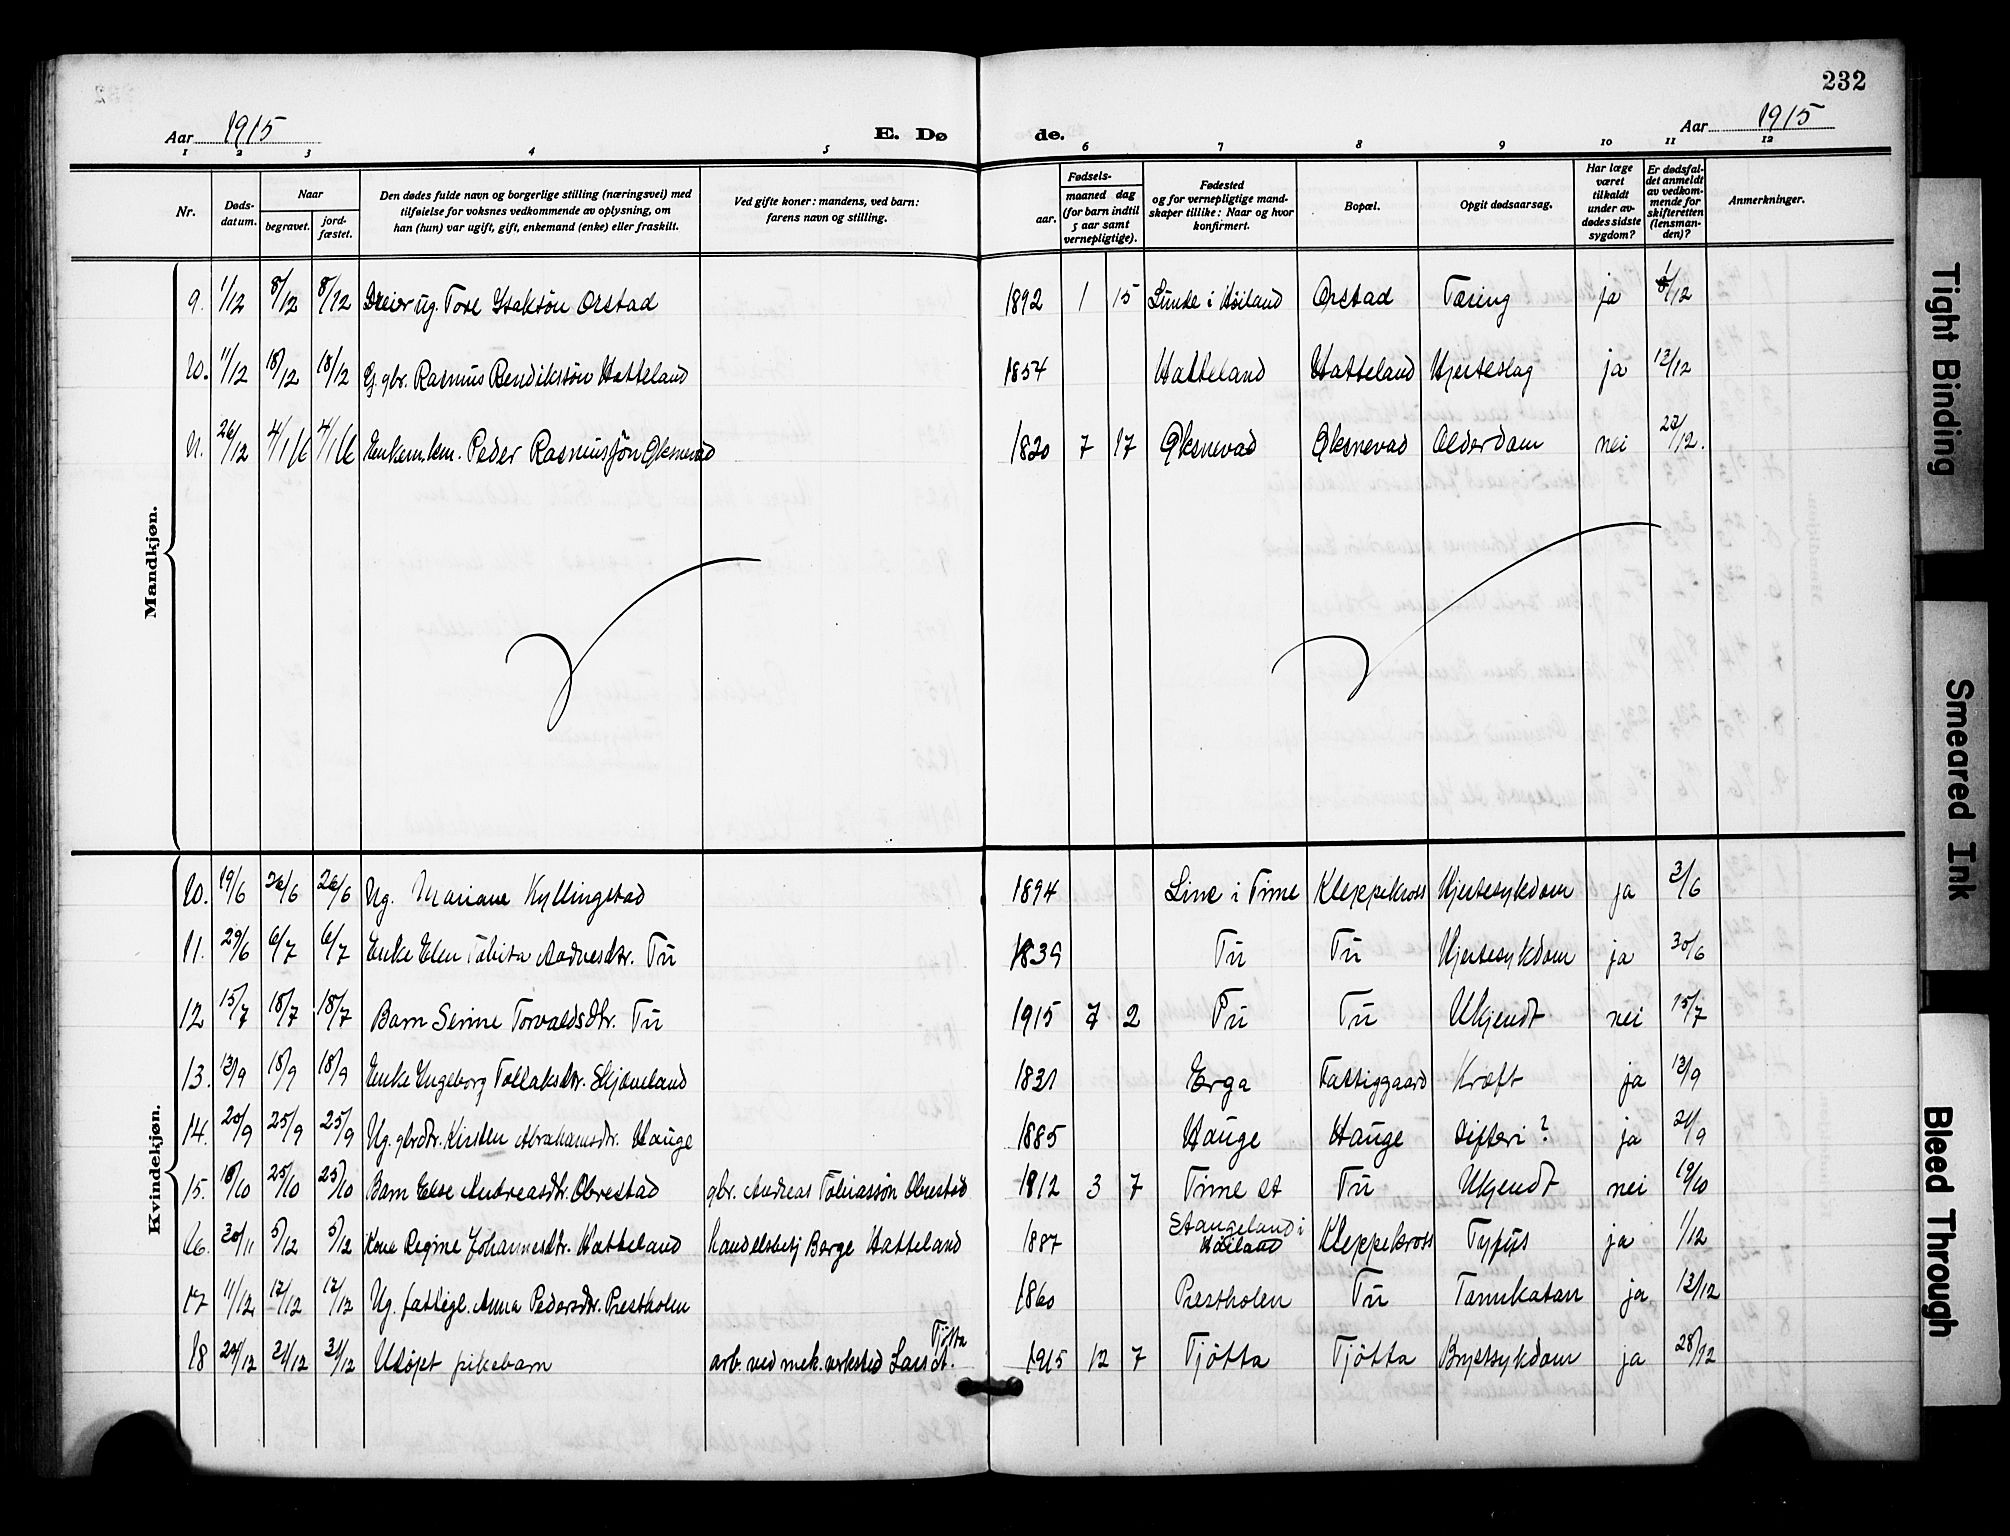 232
Aar 1915
E. Dø de.
Aar 1915
1 2 3 4 5 6 7 8 9 10 11 12
Nr.
Døds-
datum.
Naar
begravet.
jord-
fæstet.
Den dødes fulde navn og borgerlige stilling (næringsvei) med
tilføielse for voksnes vedkommende av oplysning, om
han (hun) var ugift, gift, enkemand (enke) eller fraskilt.
Ved gifte koner: mandens, ved barn:
farens navn og stilling.
Fødsels-
aar.
maaned dag
(for barn indtil
5 aar samt
vernepligtige).
Fødested
og for vernepligtige mand-
skaper tillike: Naar og hvor
konfirmert.
Bopæl.
Opgit dødsaarsag.
Har læge
været
tilkaldt
under av-
dødes sidste
sygdom?
Er dødsfal-
det anmeldt
av vedkom-
mende for
skifteretten
(lensman-
den)?
Anmerkninger.
Mandkjøn.
9. 1/12 8/12 8/12 Dreier ug. Tore Isaksøn Orstad 1892 1 15 Lunde i Høiland Orstad Tæring ja 1/12
10. 11/12 18/12 18/12 G. gbr. Rasmus Bendiksøn Hatteland 1854 Hatteland Hatteland Hjerteslag ja 12/12
11. 26/12 4/1 16 4/1 16 Enkem. Peder Rasmussøn Øksnevad 1820 7 17 Øksnevad Øksnevad Alderdom nei 27/12.
Kvindekjøn.
10. 19/6 26/6 26/6 Ug. Mariane Kyllingstad 1894 Line i Time Kleppekross Hjertesykdom ja 2/6
11. 29/6 6/7 6/7 Enke Elen Tobita Aadnesdtr. Tu 1839 Tu Tu Hjertesykdom ja 30/6
12 15/7 18/7 18/7 Barn Serine Torvaldsdtr. Tu 1915 7 2 Tu Tu Ukjendt nei 15/7
13. 13/9 18/9 18/9 Enke Ingeborg Tollaksdtr. Skjæveland 1831 Erga Fattiggaard Kræft ja 13/9
14. 20/9 25/9 25/9 Ug. gbrdtr. Kirsten Abrahamsdtr. Hauge 1885 Hauge Hauge Difteri? ja 21/9
15. 18/10 25/10 25/10 Barn Else Andreasdtr. Obrestad gbr. Andreas Tobiassøn Obrestad 1912 3 7 Time st Tu Ukjendt nei 19/10
16. 30/11 5/12 5/12 Kone Regine Johannesdtr. Hatteland handelsbetj Berge Hatteland 1887 Stangeland i Høiland Kleppekross Tyfus ja 1/12
17 11/12 17/12 17/12 Ug. fattigl. Anna Pedersdtr. Prestholen 1860 Prestholen Tu Tarmkatar ja 13/12
18 24/12 31/12 31/12 Udøpt pikebarn arb. ved mek. verksted Lars Tjøtta 1915 12 7 Tjøtta Tjøtta Brystsykdom ja 28/12
Tight Binding
Smeared Ink
Bleed Through